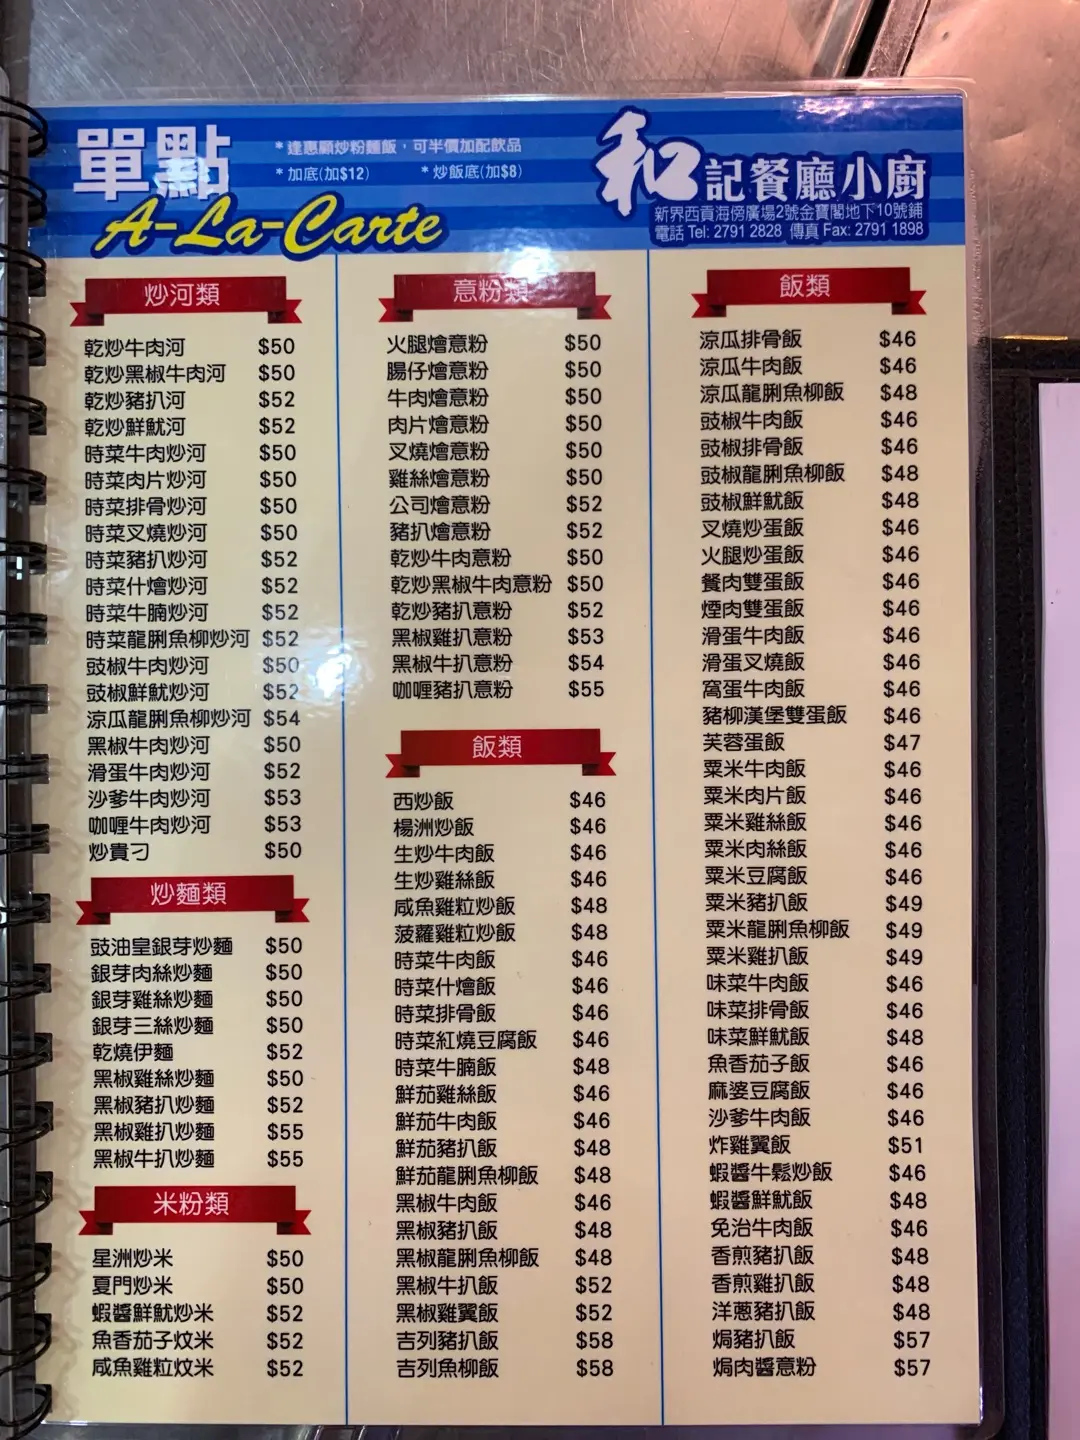 單點
A-La-Carte
*逢惠顧炒粉麵飯，可半價加配飲品
*加底(加$12) *炒飯底(加$8)
和記餐廳小廚
新界西貢海傍廣場2號金寶閣地下10號鋪
電話 Tel: 2791 2828 傳真 Fax: 2791 1898
炒河類
乾炒牛肉河 $50
乾炒黑椒牛肉河 $50
乾炒豬扒河 $52
乾炒鮮魷河 $52
時菜牛肉炒河 $50
時菜肉片炒河 $50
時菜排骨炒河 $50
時菜叉燒炒河 $50
時菜豬扒炒河 $52
時菜什燴炒河 $52
時菜牛腩炒河 $52
時菜龍脷魚柳炒河 $52
豉椒牛肉炒河 $50
豉椒鮮魷炒河 $52
涼瓜龍脷魚柳炒河 $54
黑椒牛肉炒河 $50
滑蛋牛肉炒河 $52
沙爹牛肉炒河 $53
咖喱牛肉炒河 $53
炒貴刁 $50
炒麵類
豉油皇銀芽炒麵 $50
銀芽肉絲炒麵 $50
銀芽雞絲炒麵 $50
銀芽三絲炒麵 $50
乾燒伊麵 $52
黑椒雞絲炒麵 $50
黑椒豬扒炒麵 $52
黑椒雞扒炒麵 $55
黑椒牛扒炒麵 $55
米粉類
星洲炒米 $50
夏門炒米 $50
蝦醬鮮魷炒米 $52
魚香茄子炆米 $52
咸魚雞粒炆米 $52
意粉類
火腿燴意粉 $50
腸仔燴意粉 $50
牛肉燴意粉 $50
肉片燴意粉 $50
叉燒燴意粉 $50
雞絲燴意粉 $50
公司燴意粉 $52
豬扒燴意粉 $52
乾炒牛肉意粉 $50
乾炒黑椒牛肉意粉 $50
乾炒豬扒意粉 $52
黑椒雞扒意粉 $53
黑椒牛扒意粉 $54
咖喱豬扒意粉 $55
飯類
西炒飯 $46
楊洲炒飯 $46
生炒牛肉飯 $46
生炒雞絲飯 $46
咸魚雞粒炒飯 $48
菠蘿雞粒炒飯 $48
時菜牛肉飯 $46
時菜什燴飯 $46
時菜排骨飯 $46
時菜紅燒豆腐飯 $46
時菜牛腩飯 $48
鮮茄雞絲飯 $46
鮮茄牛肉飯 $46
鮮茄豬扒飯 $48
鮮茄龍脷魚柳飯 $48
黑椒牛肉飯 $46
黑椒豬扒飯 $48
黑椒龍脷魚柳飯 $48
黑椒牛扒飯 $52
黑椒雞翼飯 $52
吉列豬扒飯 $58
吉列魚柳飯 $58
飯類
涼瓜排骨飯 $46
涼瓜牛肉飯 $46
涼瓜龍脷魚柳飯 $48
豉椒牛肉飯 $46
豉椒排骨飯 $46
豉椒龍脷魚柳飯 $48
豉椒鮮魷飯 $48
叉燒炒蛋飯 $46
火腿炒蛋飯 $46
餐肉雙蛋飯 $46
煙肉雙蛋飯 $46
滑蛋牛肉飯 $46
滑蛋叉燒飯 $46
窩蛋牛肉飯 $46
豬柳漢堡雙蛋飯 $46
芙蓉蛋飯 $47
粟米牛肉飯 $46
粟米肉片飯 $46
粟米雞絲飯 $46
粟米肉絲飯 $46
粟米豆腐飯 $46
粟米豬扒飯 $49
粟米龍脷魚柳飯 $49
粟米雞扒飯 $49
味菜牛肉飯 $46
味菜排骨飯 $46
味菜鮮魷飯 $48
魚香茄子飯 $46
麻婆豆腐飯 $46
沙爹牛肉飯 $46
炸雞翼飯 $51
蝦醬牛鬆炒飯 $46
蝦醬鮮魷飯 $48
免治牛肉飯 $46
香煎豬扒飯 $48
香煎雞扒飯 $48
洋蔥豬扒飯 $48
焗豬扒飯 $57
焗肉醬意粉 $57